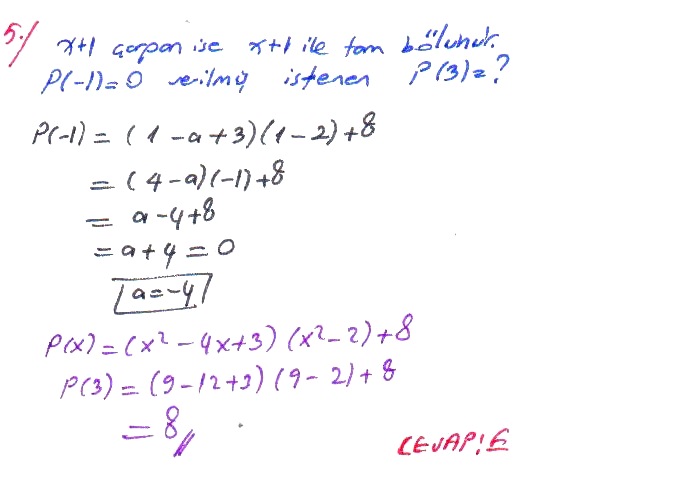 5-/ x+1 çarpan ise x+1 ile tam bölünür.
P(-1)=0 verilmiş istenen P(3)=?
P(-1) = (1-a+3)(1-2)+8
= (4-a)(-1)+8
= a-4+8
= a+4 = 0
a=-4
P(x) = (x² - 4x+3) (x²-2)+8
P(3) = (9-12+3) (9-2)+8
= 8//
CEVAP: E